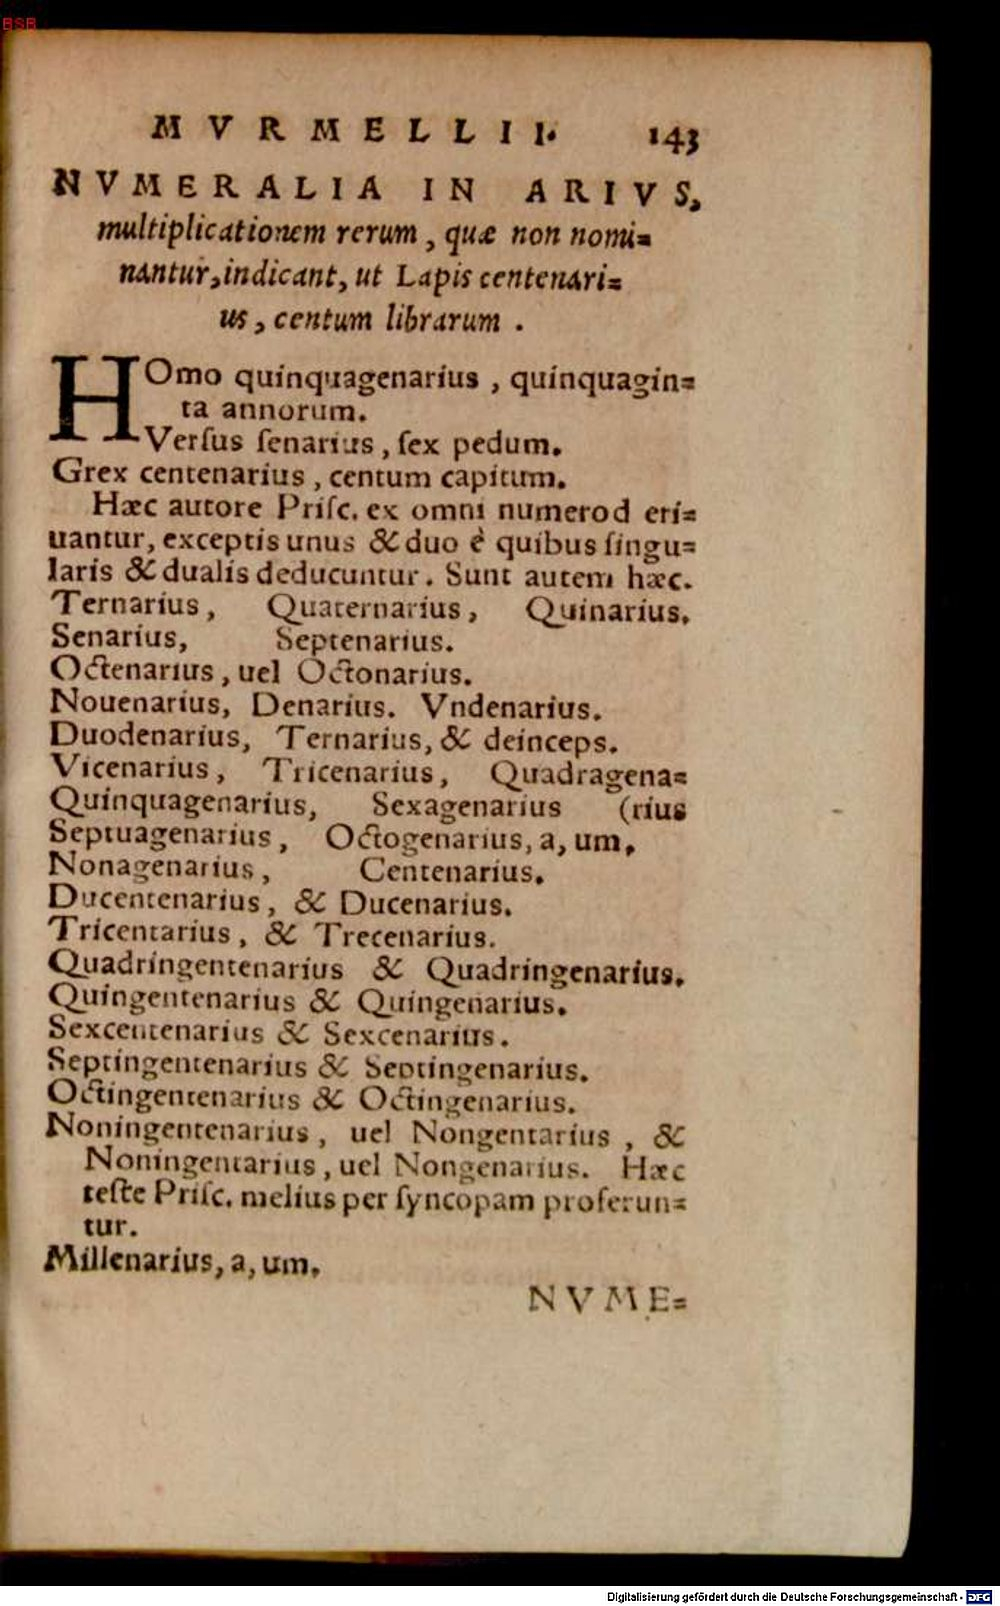 BSB
MVRMELLII. 143
NVMERALIA IN ARIVS,
multiplicationem rerum, quæ non nomi=
nantur, indicant, ut Lapis centenari=
us, centum librarum.
HOmo quinquagenarius, quinquagin=
ta annorum.
Verſus ſenarius, ſex pedum.
Grex centenarius, centum capitum.
Hæc autore Priſc. ex omni numerod eri=
uantur, exceptis unus & duo è quibus ſingu=
laris & dualis deducuntur. Sunt autem hæc.
Ternarius, Quaternarius, Quinarius.
Senarius, Septenarius.
Octenarius, uel Octonarius.
Nouenarius, Denarius. Vndenarius.
Duodenarius, Ternarius, & deinceps.
Vicenarius, Tricenarius, Quadragena=
Quinquagenarius, Sexagenarius (rius
Septuagenarius, Octogenarius, a, um,
Nonagenarius, Centenarius.
Ducentenarius, & Ducenarius.
Tricentarius, & Trecenarius.
Quadringentenarius & Quadringenarius.
Quingentenarius & Quingenarius.
Sexcentenarius & Sexcenarius.
Septingentenarius & Septingenarius.
Octingentenarius & Octingenarius.
Noningentenarius, uel Nongentarius, &
Noningentarius, uel Nongenarius. Hæc
teſte Priſc. melius per ſyncopam proferun=
tur.
Millenarius, a, um.
NVME=
Digitalisierung gefördert durch die Deutsche Forschungsgemeinschaft - DFG